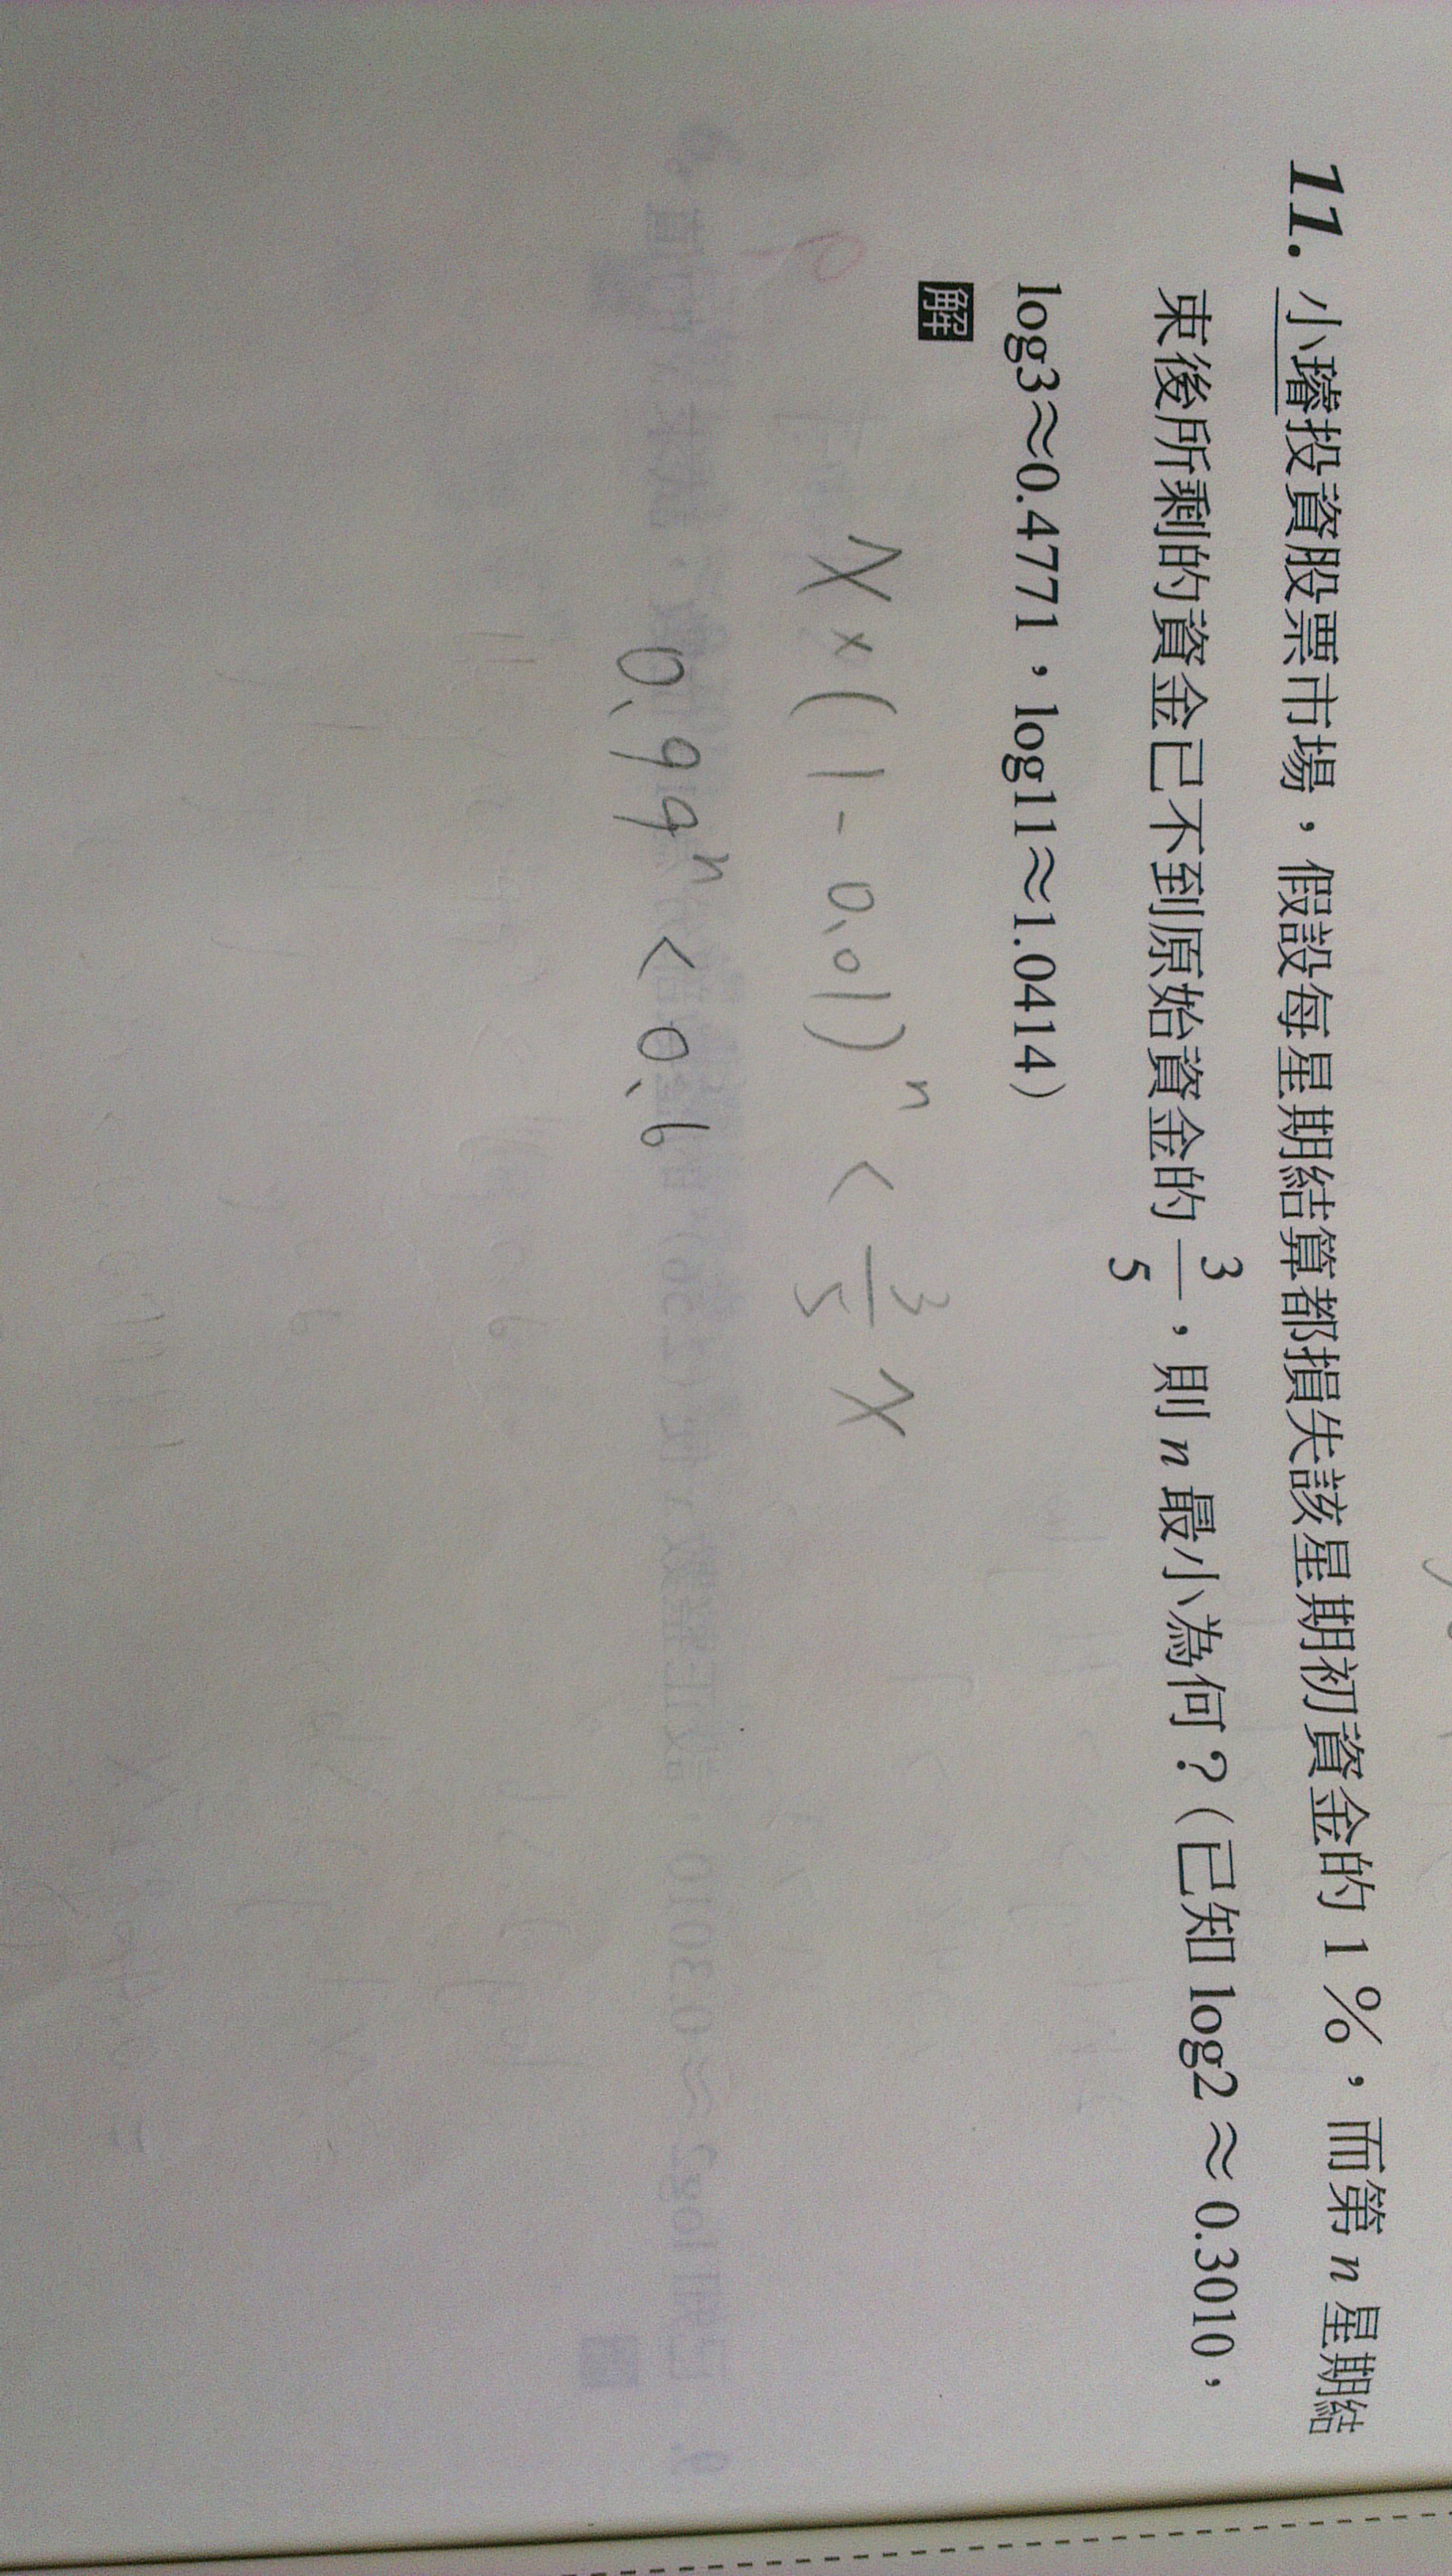 11. 小璿投資股票市場,假設每星期結算都損失該星期初資金的 1 %,而第 n 星期結
束後所剩的資金已不到原始資金的 3/5,則 n 最小為何?(已知 log2 ≈ 0.3010,
log3≈0.4771,log11≈1.0414)
解
x × (1 - 0.01)ⁿ < 3/5 x
0.99ⁿ < 0.6